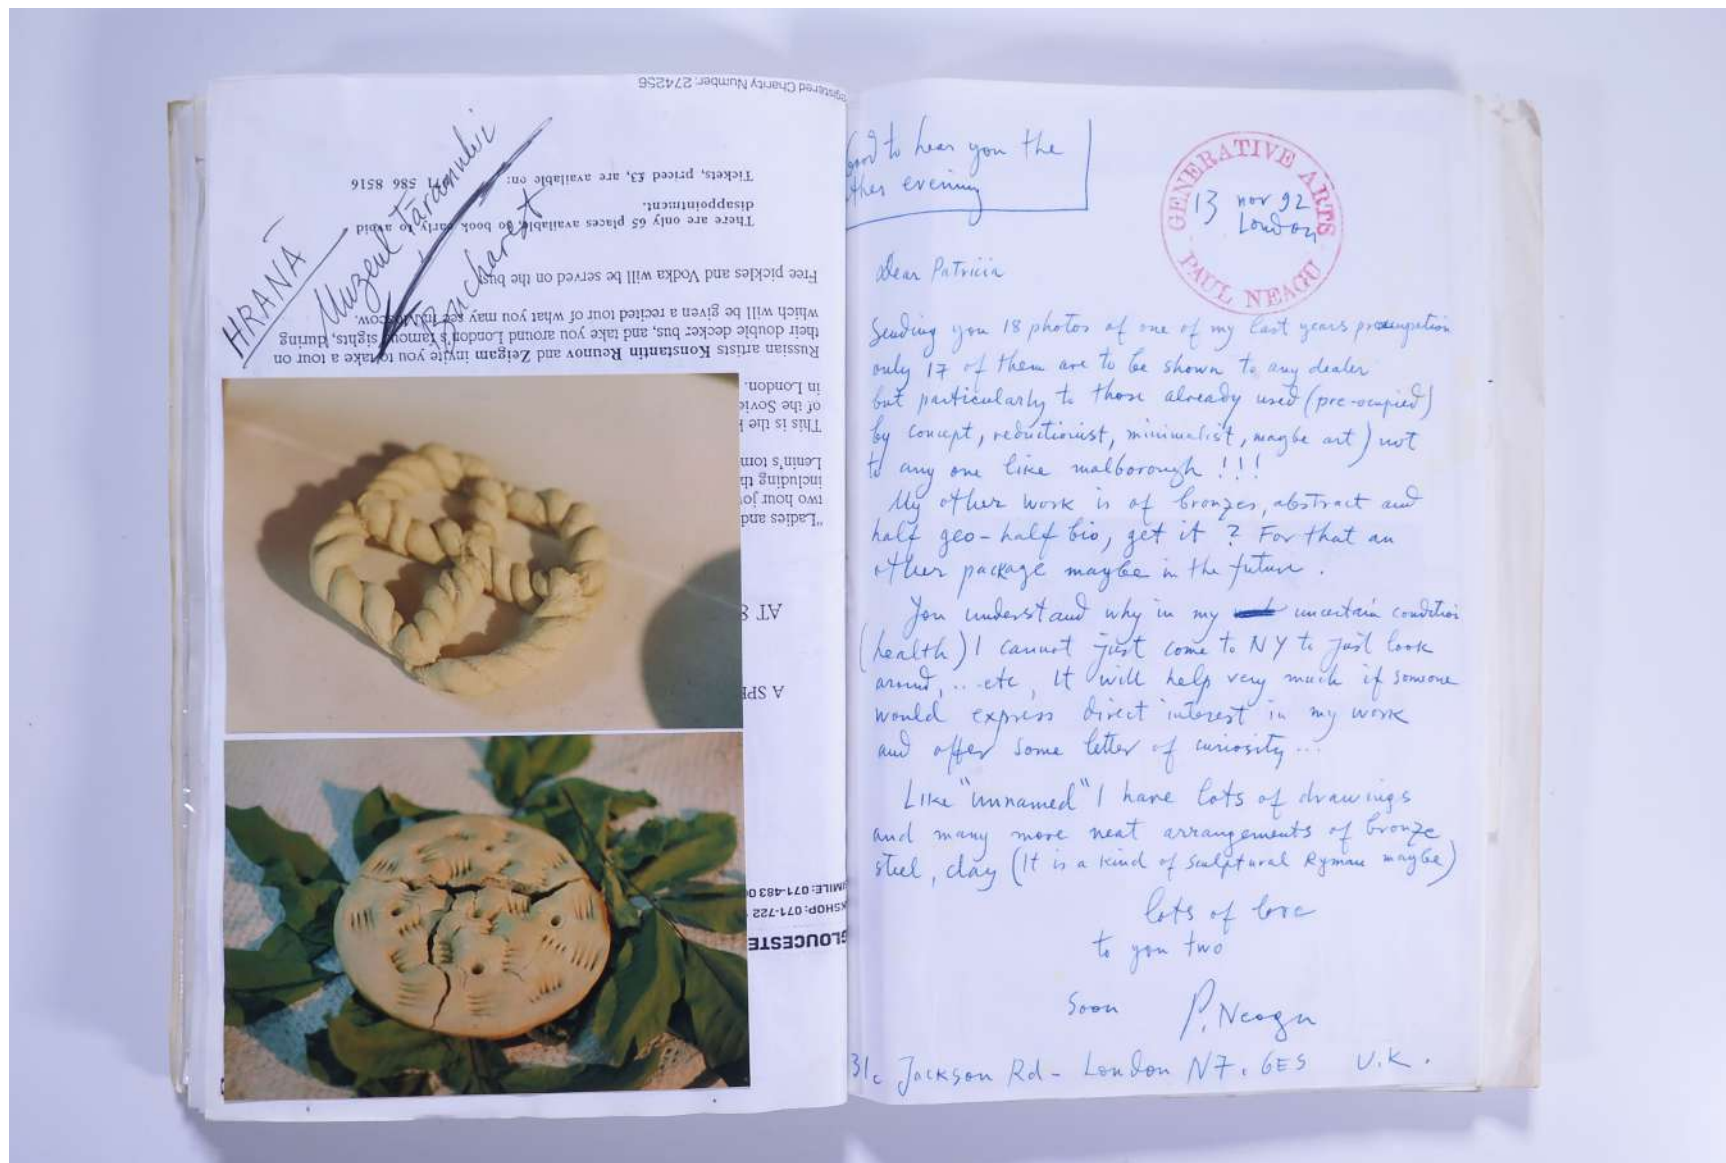 HRANĂ
Muzeul Țăranului
Bucharest
Registered Charity Number: 274256
Tickets, priced £3, are available on: 071 586 8516
disappointment.
There are only 65 places available, so book early to avoid
Free pickles and Vodka will be served on the bus.
which will be given a recited tour of what you may see in Moscow.
their double decker bus, and take you around London's famous sights, during
Russian artists Konstantin Reunov and Zeigam invite you to take a tour on
in London.
of the Sovie
This is the
Lenin's tom
including th
two hour jo
"Ladies and
AT
A SP
MILE: 071-483 0
KSHOP: 071-722
GLOUCESTE
Good to hear you the
other evening
GENERATIVE ARTS
PAUL NEAGU
13 nov 92
London
Dear Patricia
Sending you 18 photos of one of my last years
only 17 of them are to be shown to any dealer
but particularly to those already used (pre-ocupied)
by concept, reductionist, minimalist, maybe art) not
to any one like malborough !!!
My other work is of bronzes, abstract and
half geo-half bio, get it ? For that an
other package maybe in the future.
You understand why in my uncertain condition
(health) I cannot just come to NY to just look
around, .. etc, It will help very much if someone
would express direct interest in my work
and offer some letter of curiosity...
Like "unnamed" I have lots of drawings
and many more neat arrangements of bronze
steel, clay (It is a kind of sculptural Ryman maybe)
lots of love
to you two
Soon P. Neagu
31c Jackson Rd - London N7. 6ES U.K.